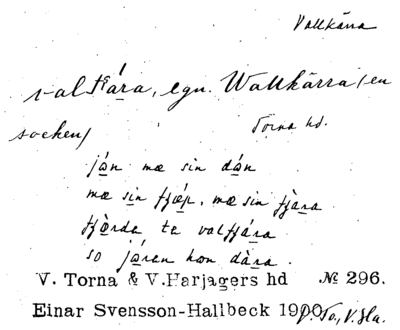 Vallkärra
valkára, egn. Wallkärra (en
socken)
Torna hd.
ján mæ sin dán
mæ sin fjǽp, mæ sin fjàra
fjòrde te valkára
so járen hon dàra.
V. Torna & V. Harjagers hd № 296.
Einar Svensson-Hallbeck 1900. V. To, V. Ha.